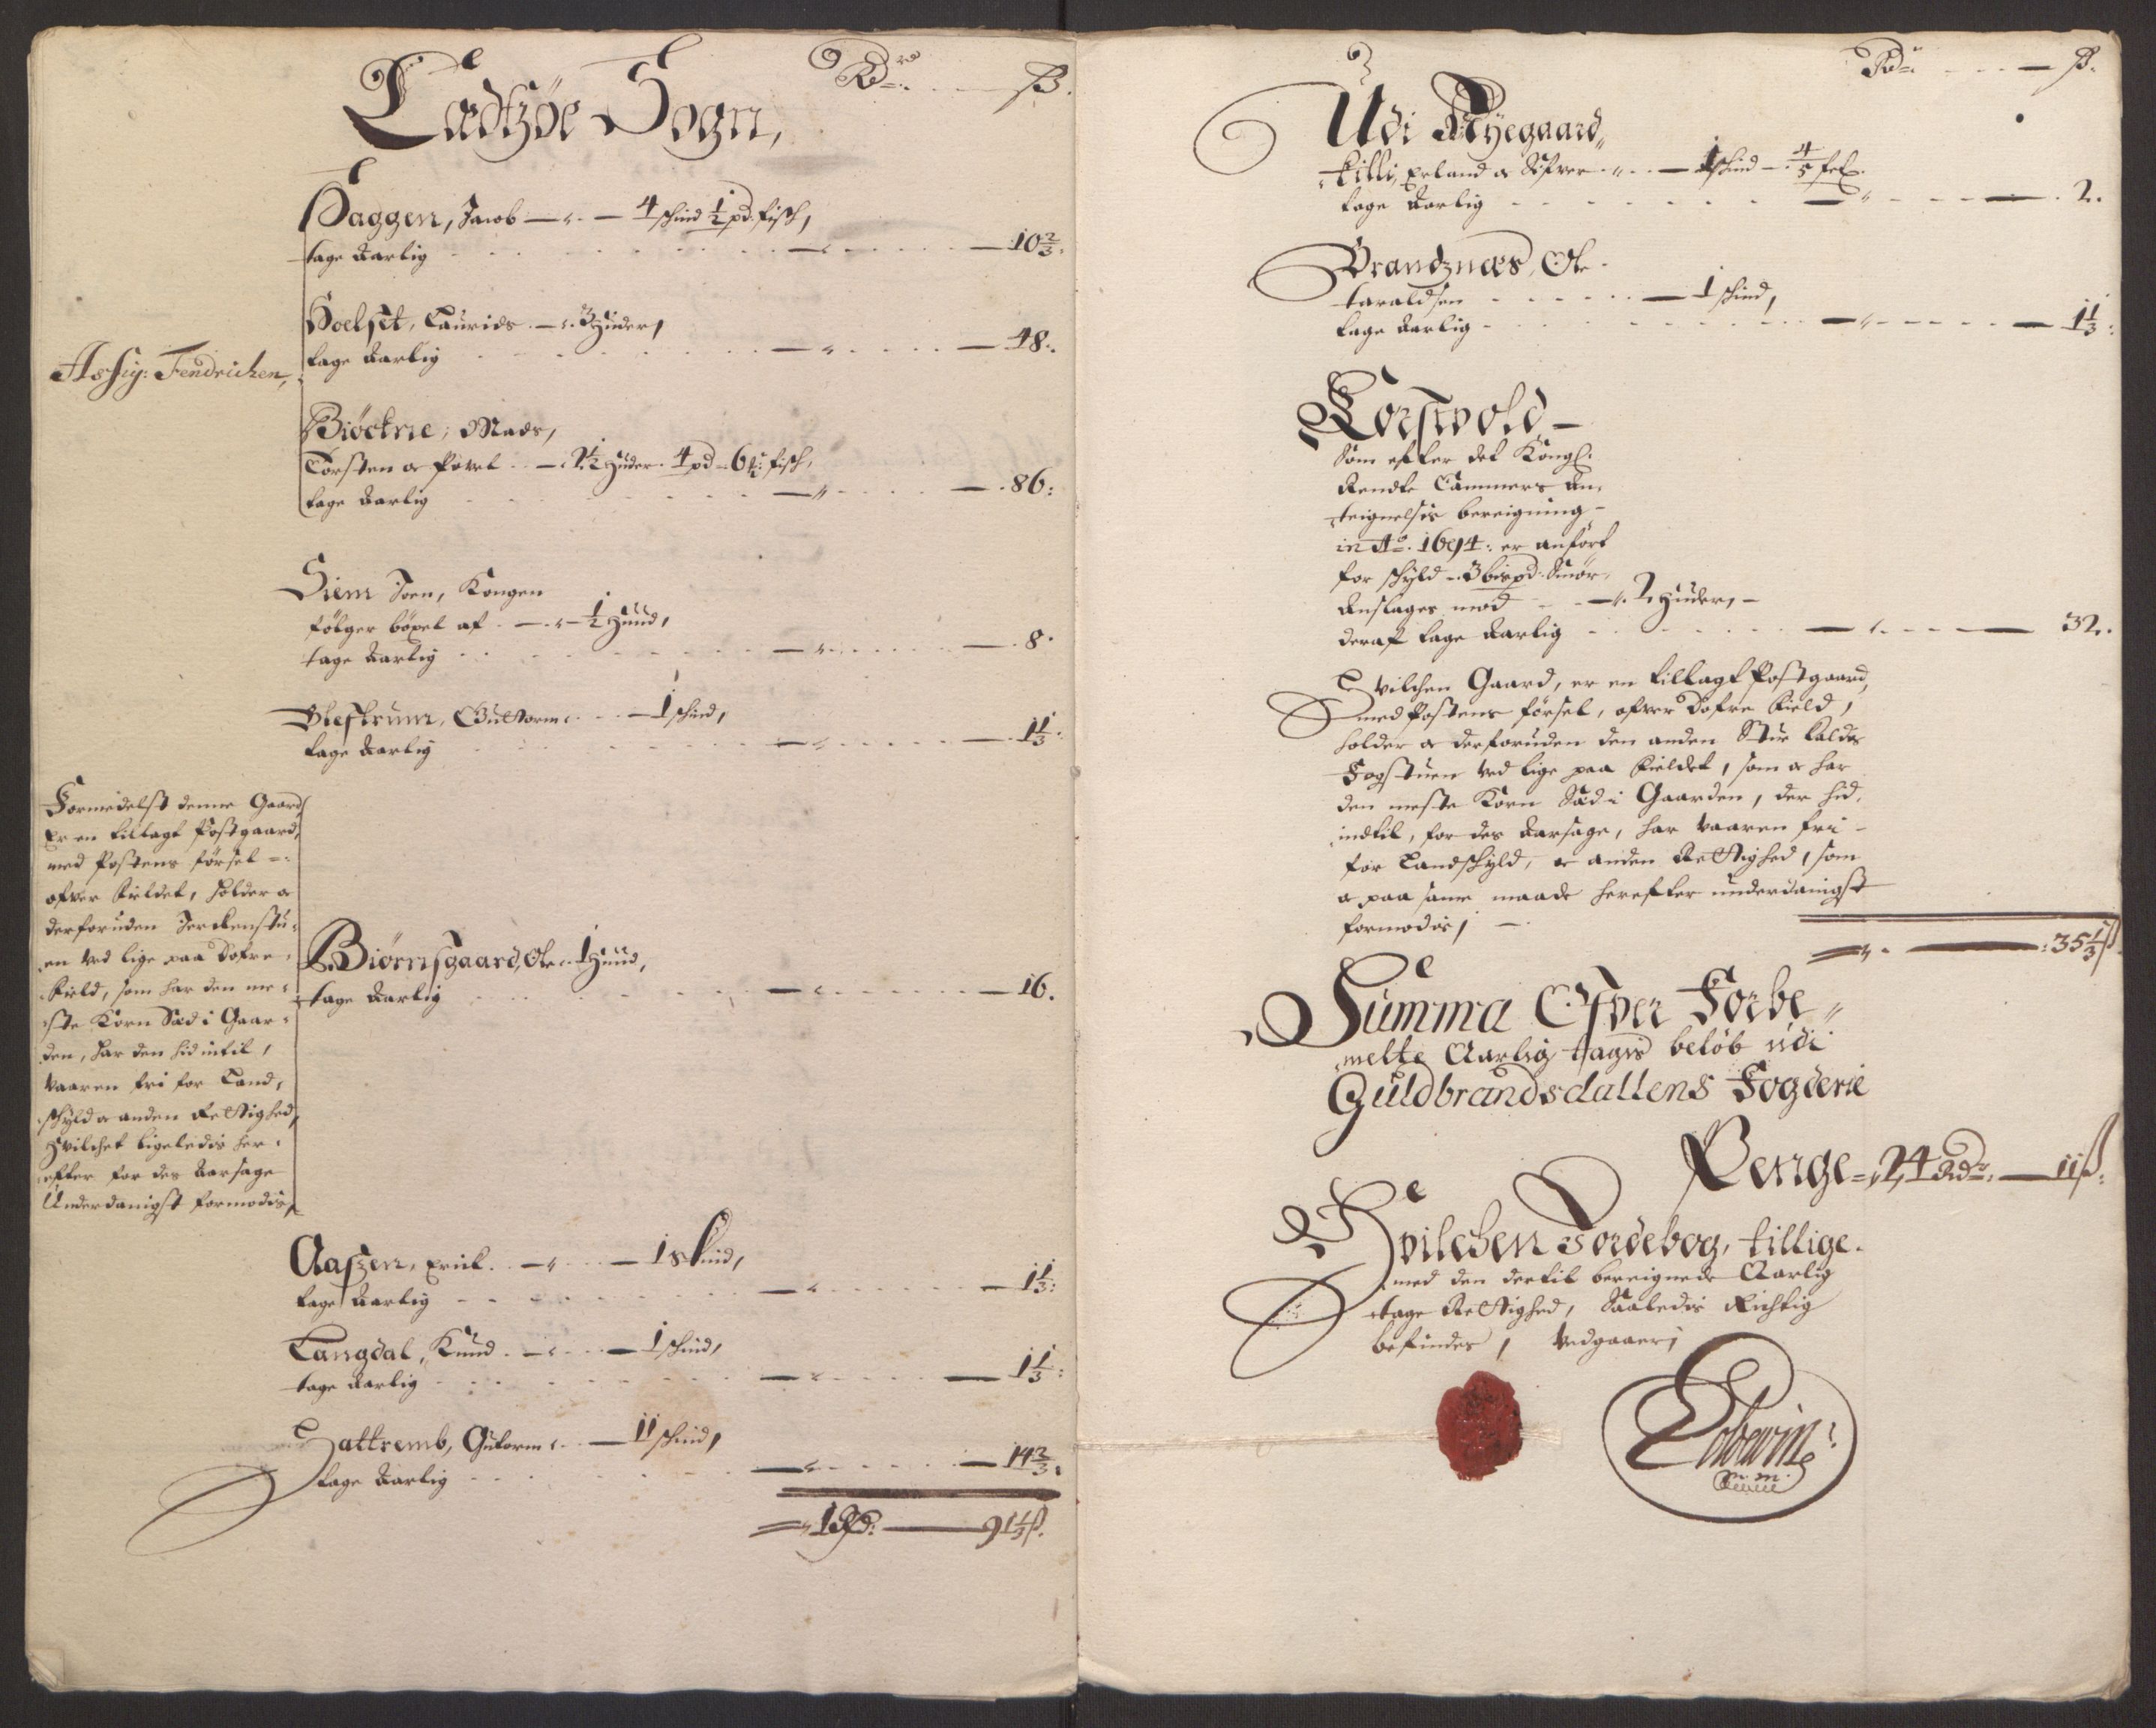 Rdr. ß.
Ladtzøe Sogn,
Haggen, Jacob — 4 schind ½ pd: fisch,
tage Aarlig — 10⅔:
Hoelset, Laurids — 3 Huder,
tage Aarlig — 48:
Assig: Fendrichen,
Biøckne, Mads,
Torsten og Povel — Huder. 4 pd 6 fisch,
tage Aarlig — 86:
Siem Joen, Kongen
følger böxel af — ½ Huud,
tage Aarlig — 8.
Guttorm — 1 schind,
tage Aarlig — 1⅓:
Formedelst denne Gaard
Er en tillagt Postgaard,
med Postens førsel
ofver fieldet, holder og
derforuden Jerckenstu-
en ved lige paa Dofre-
field, som har den me-
ste Korn Sæd i Gaar-
den, har den hid intil,
vaaren fri for Land-
schyld og anden Rettighed,
Hvilchet ligeledis her-
efter for des Aarsage
Underdanigst formodis,
Biørnsgaard, Ole — 1 Huud,
tage Aarlig — 16.
Aaszen, Erich — 1 skind,
tage Aarlig — 1⅓:
Langdal, Knud — 1 schind,
tage Aarlig — 1⅓:
Hattremb, Gutorm — 11 schind,
tage Aarlig — 14⅔:
1 Rd: — 91⅓ ß.
Rdr. — ß.
Udi Nyegaard,
tilli, Erland og Sifver — 1 schind — 4/5
tage Aarlig — 2.
Brandznæs, Ole
taraldsen — 1 schind,
tage Aarlig — 1⅓:
Torswold —
Som efter det Kongl.
Rendte Cammers An-
teignelsis bereigning
in Ao. 1694: er anført
for schyld 3 bispd: Smør,
Anslages mod — 2 Huder, —
deraf tage Aarlig — 32.
Hvilchen Gaard, er en tillagt Postgaard,
med Postens førsel, ofver Dofre field,
holder og derforuden den anden Stue kaldes
Fogstuen ved lige paa fieldet, som og har
den meste Korn Sæd i Gaarden, der hid-
indtil, for des Aarsage, har vaaren fri
for Landschyld, og anden Rettighed, som
og paa same maade herefter underdanigst
formodis, —
35⅓ ß.
Summa Ofver Forbe-
melte Aarlig tages beløb udi
Guldbrandsdallens Fogderie
Penge — 24 Rdr. — 11 ß:
Hvilchen Jordebog, tillige
med den dertil bereignede Aarlig
tage Rettighed, Saaledis Rigtig
befindes, vedgaaer,